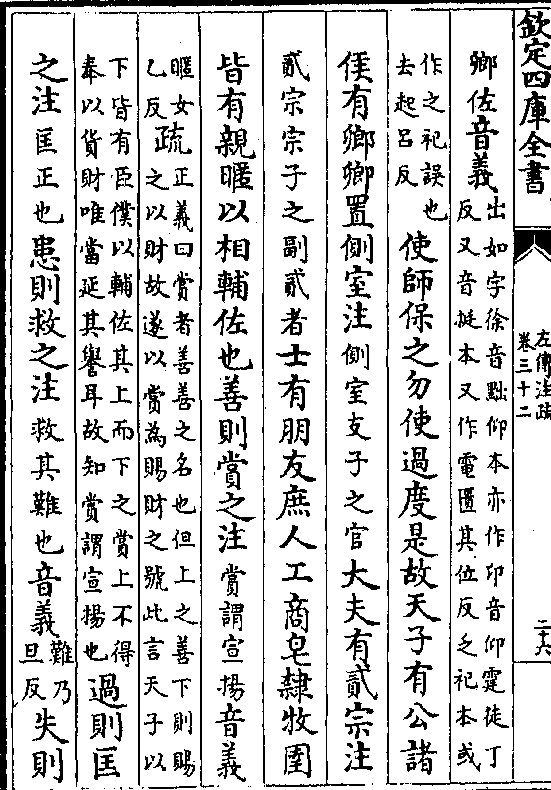 欽定四庫全書
左傳注疏
卷三十二
二十六
卿佐音義出如字徐音黜仰本亦作卬音仰霆徒丁
反又音挺本又作電匱其位反乏祀本或
作之祀誤也
去起呂反
使師保之勿使過度是故天子有公諸
侯有卿卿置側室注側室支子之官大夫有貳宗注
貳宗宗子之副貳者士有朋友庶人工商皂隸牧圉
皆有親暱以相輔佐也善則賞之注賞謂宣揚音義
暱女
乙反
疏正義曰賞者善善之名也但上之善下則賜
之以財故遂以賞為賜財之號此言天子以
下皆有臣僕以輔佐其上而下之賞上不得
奉以貨財唯當延其譽耳故知賞謂宣揚也
過則匡
之注匡正也患則救之注救其難也音義難乃
旦反
失則